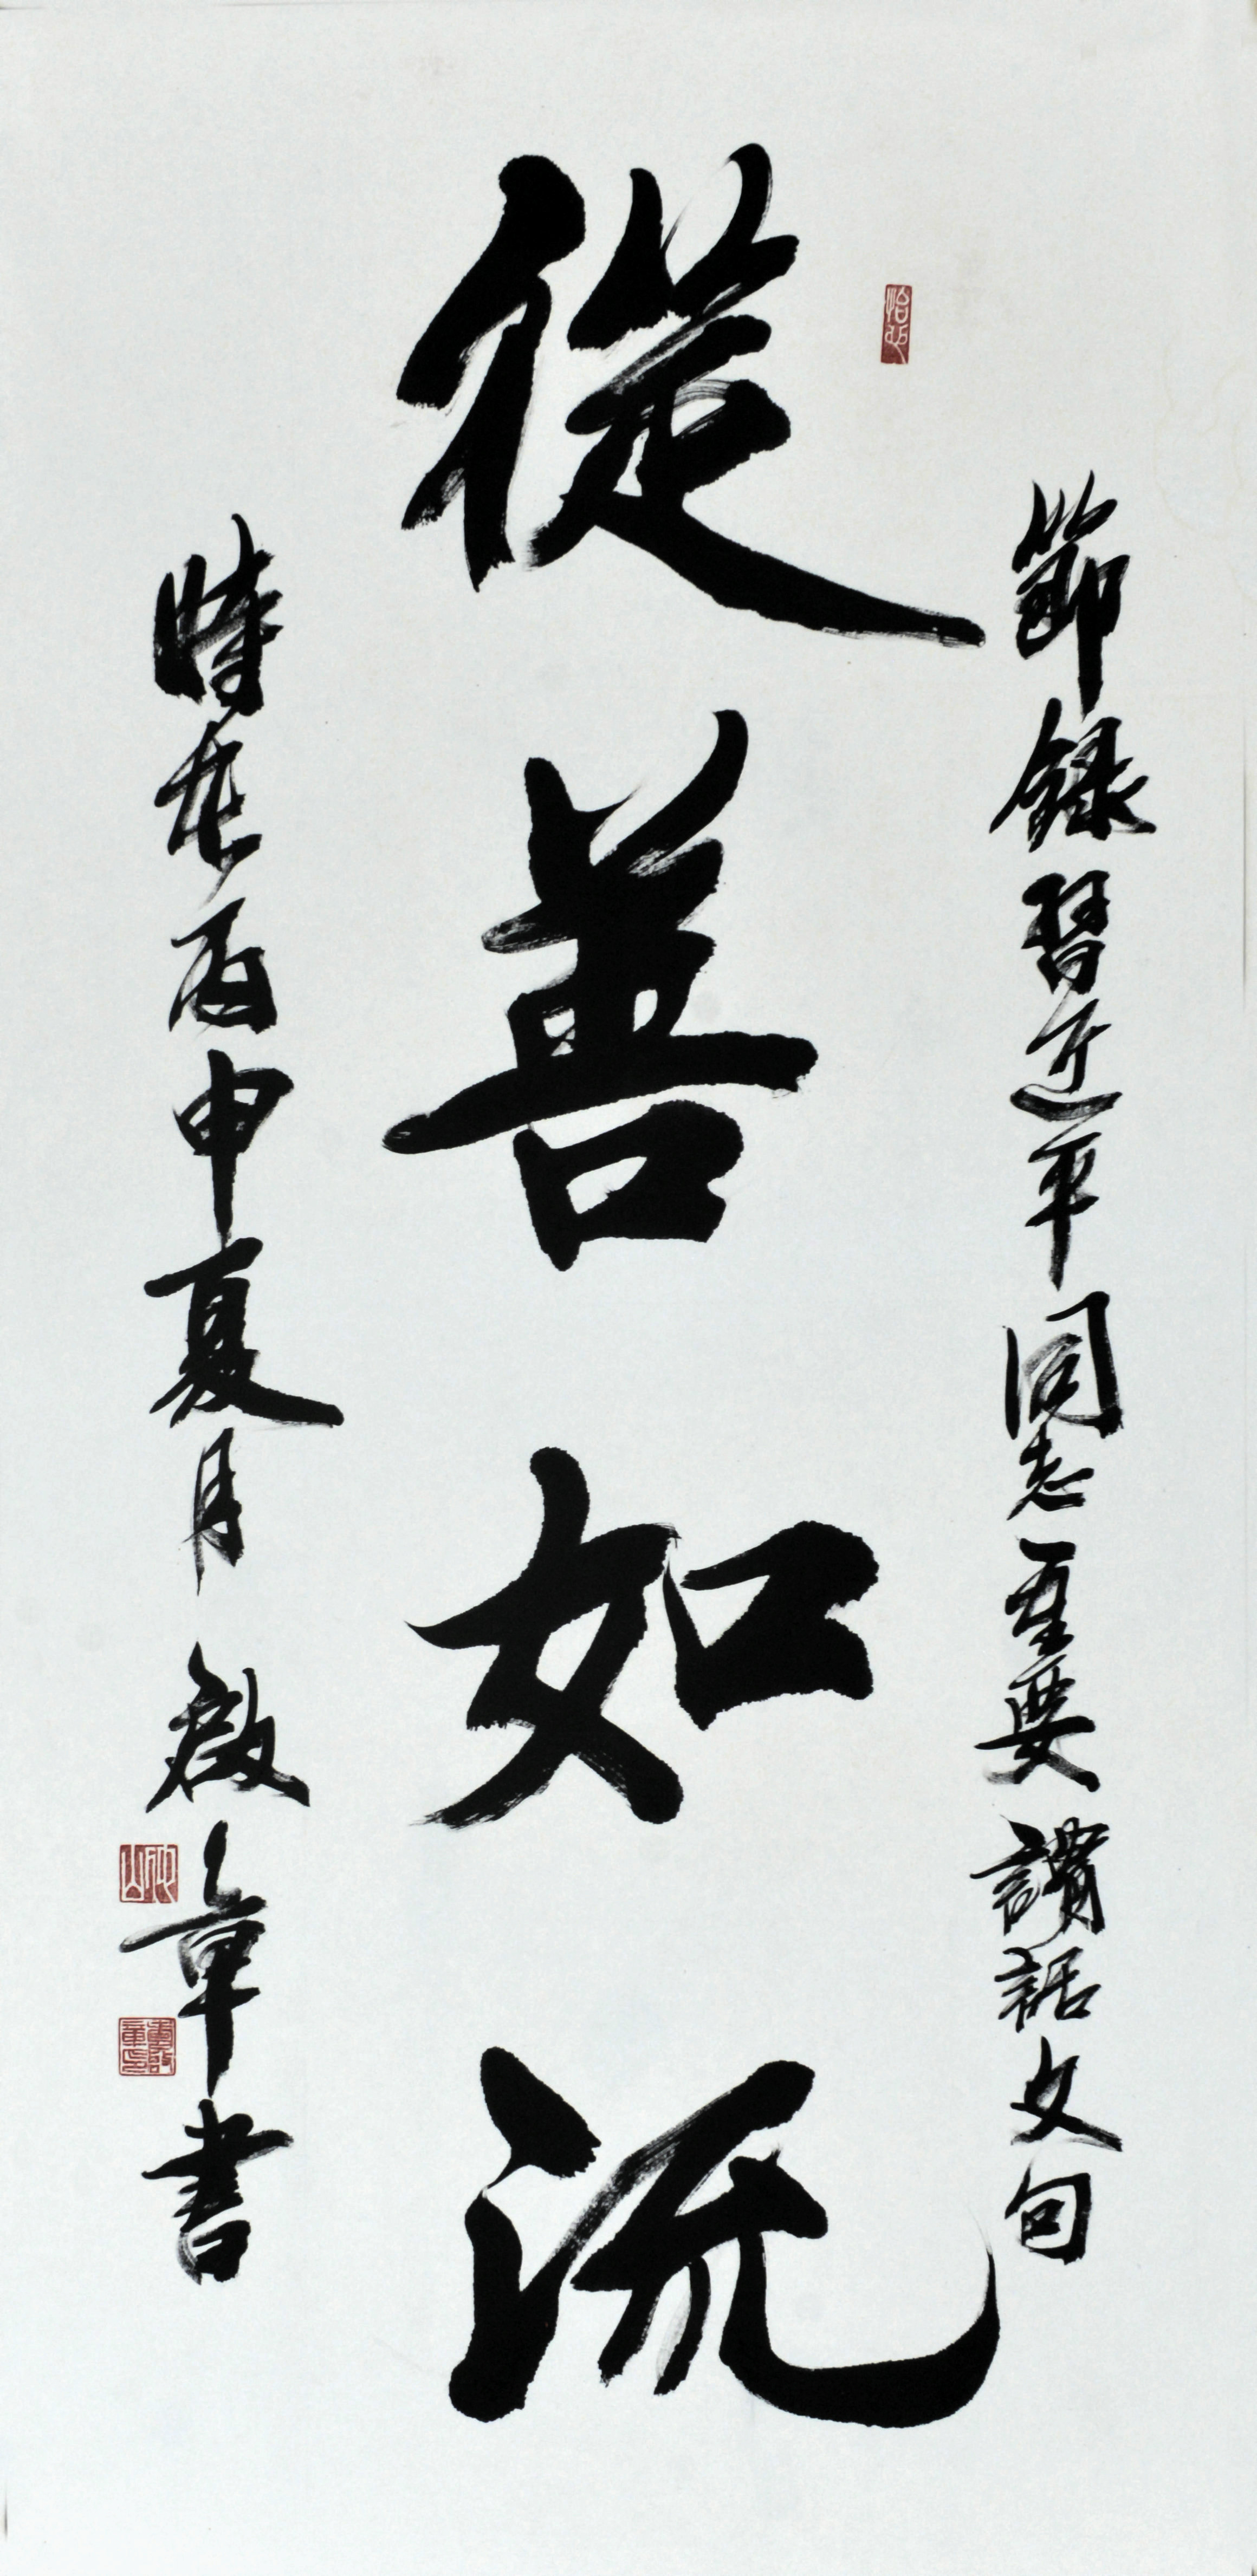 節錄習近平同志重要講話文句
從善如流
時在丙申夏月 啟章書